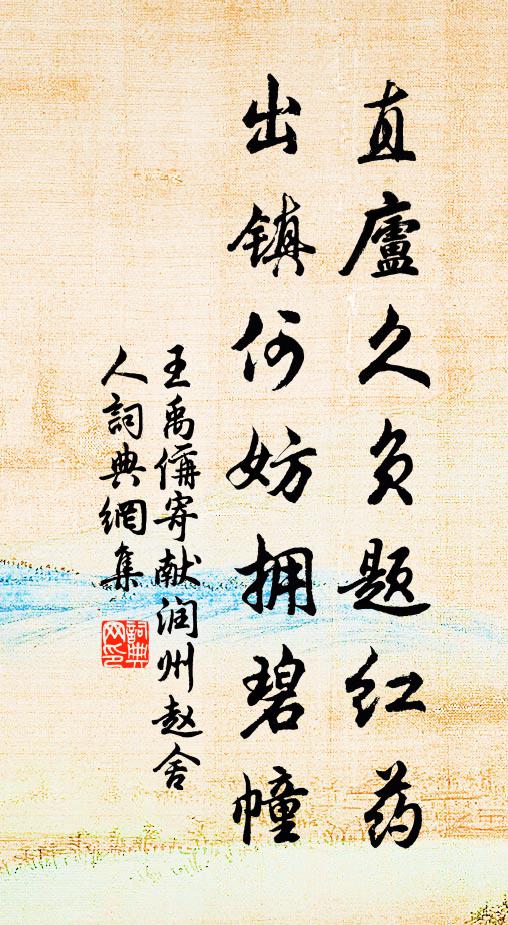 直廬久负题红药
出镇何妨拥碧幢
王禹偁寄献润州赵舍
人詞典網集
詞典
网印